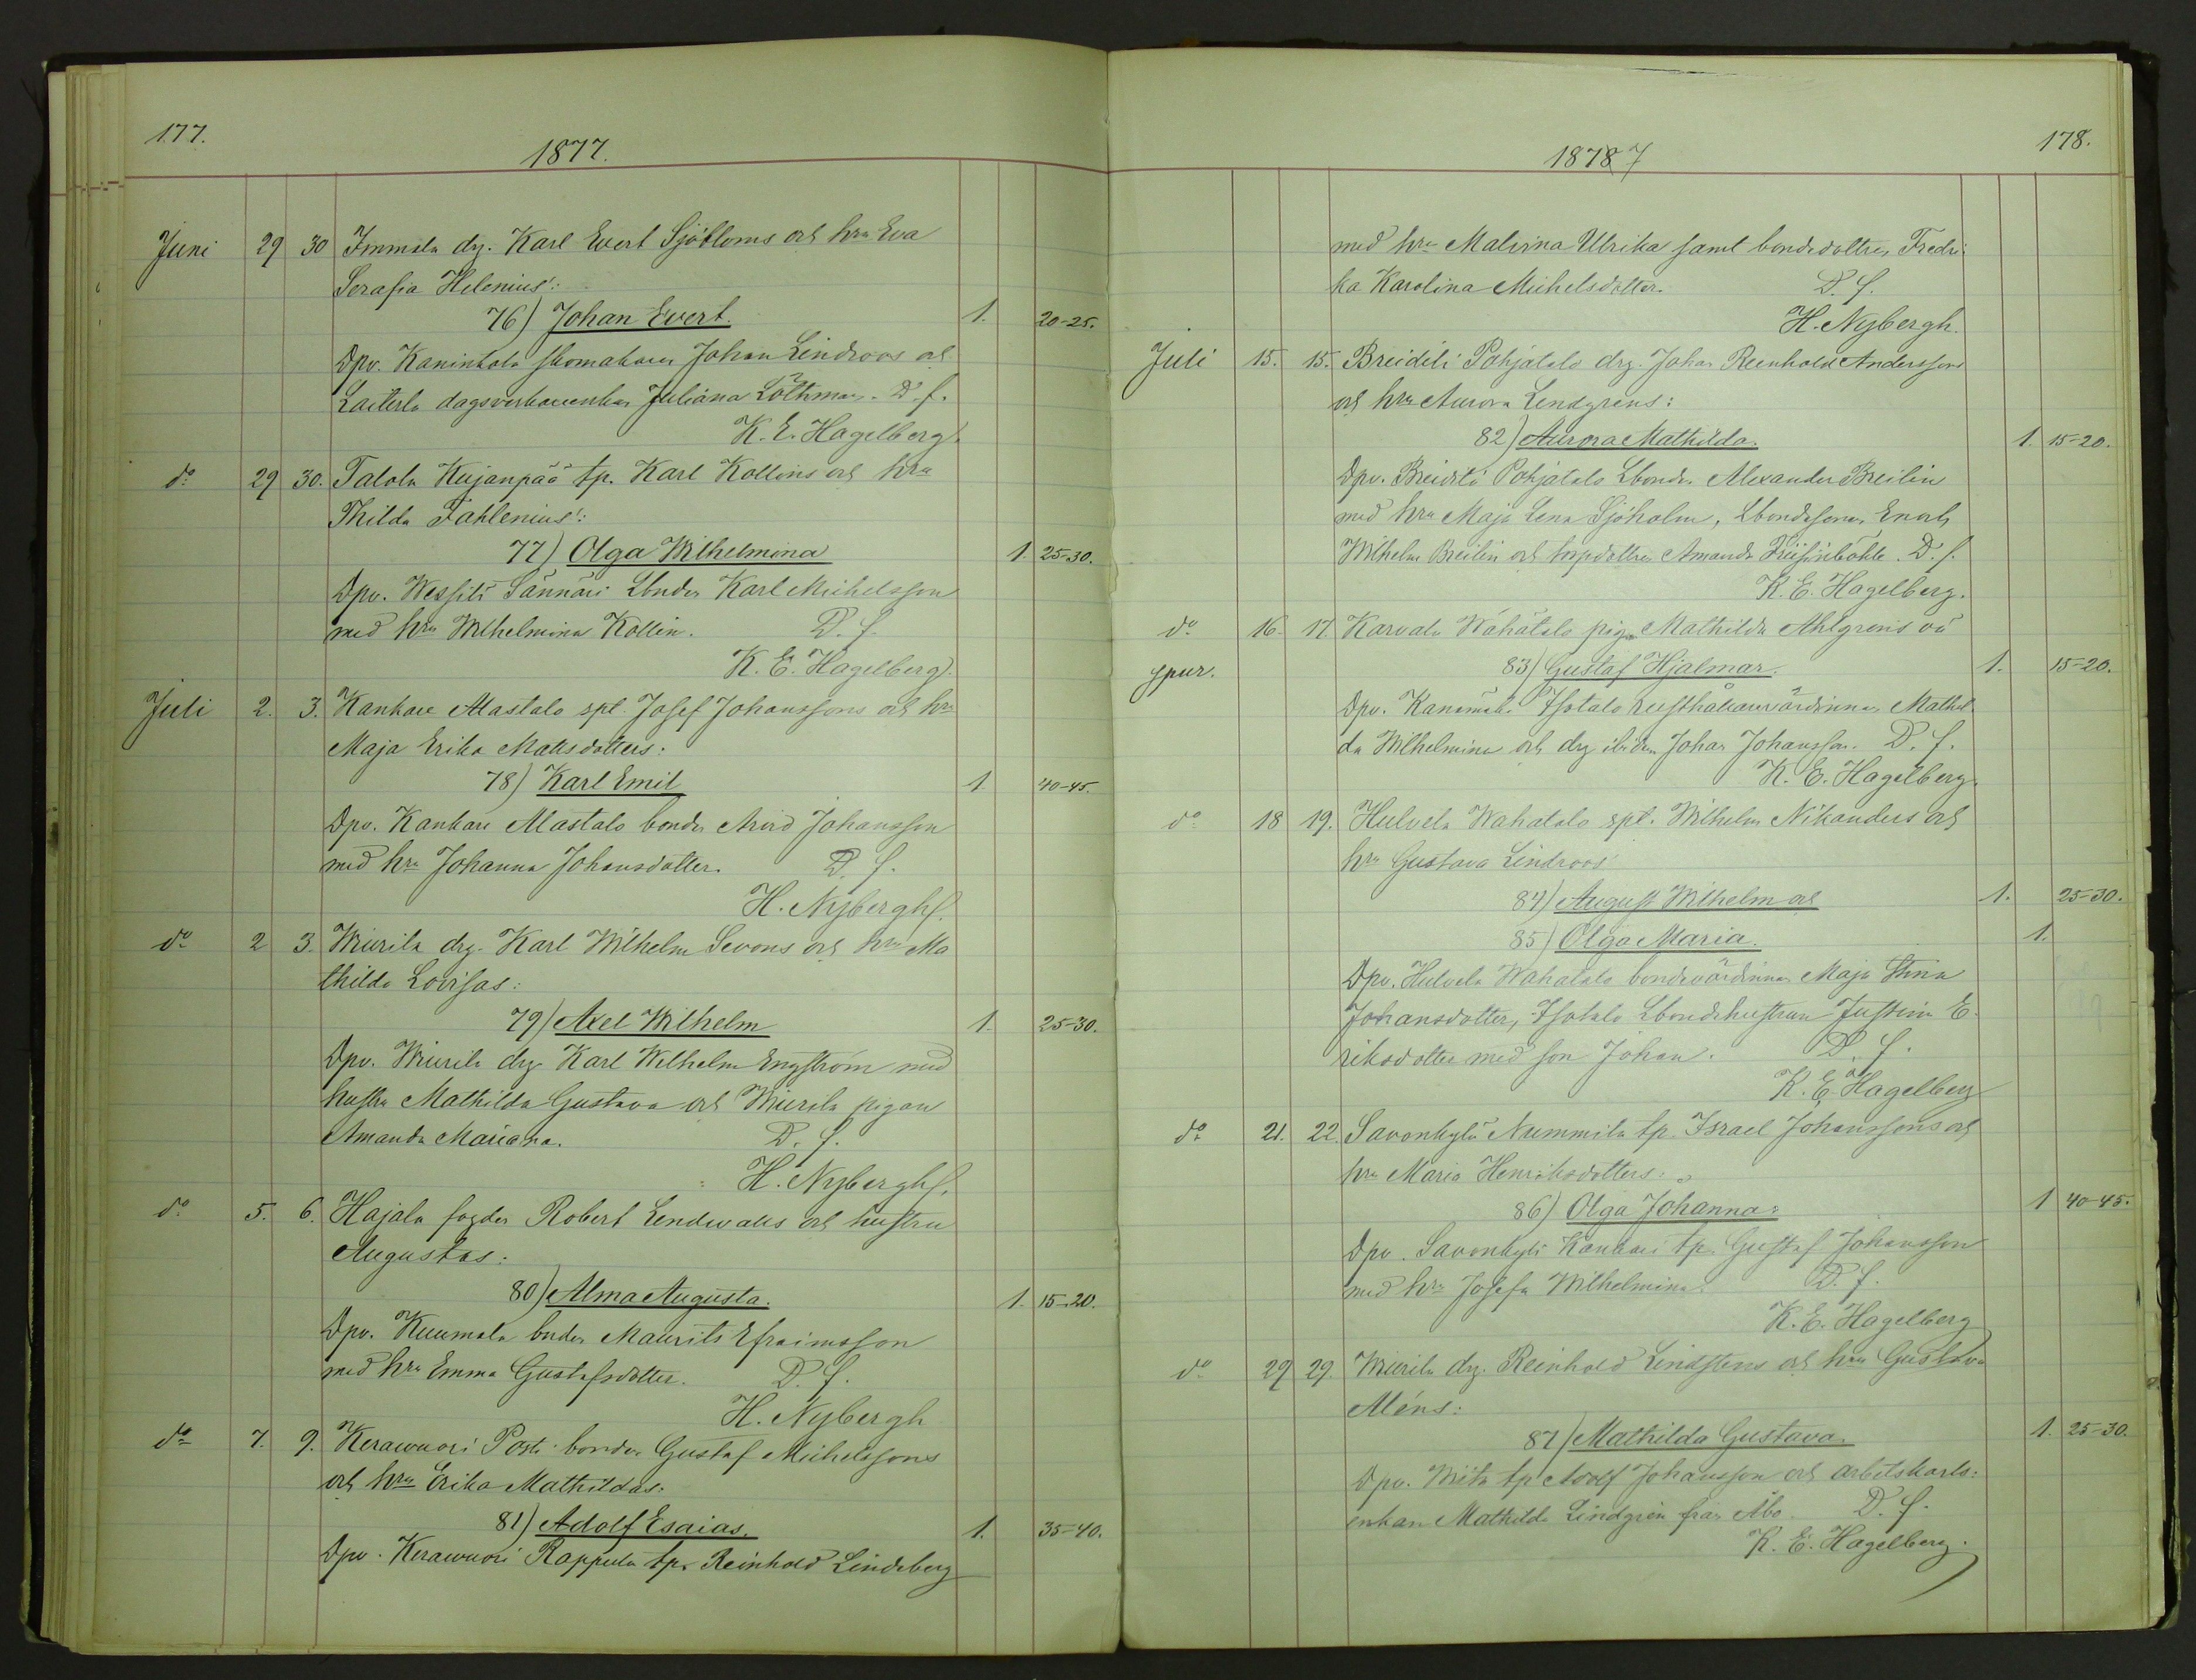 177.
1877.
Juni 29 30 Immala drg. Karl Evert Sjöbloms och hru Eva
Serafia Helenius':
76) Johan Evert. 1. 20-25.
Dpv. Kaninkola skomakaren Johan Lindroos och
Laiterla dagsverkareenkan Juliana Löthman. D. f.
K. E. Hagelberg.
do 29 30. Talola Kujanpää tp. Karl Kollins och hru
Thilda Fahlenius':
77) Olga Wilhelmina 1. 25-30.
Dpv. Wessilä Sännäri Lbonden Karl Michelsson
med hru Wilhelmina Kollin. D. f.
K. E. Hagelberg.
Juli 2. 3. Kankare Alastalo spl. Josef Johanssons och hru
Maja Erika Matsdotters:
78) Karl Emil 1. 40-45.
Dpv. Kankare Alastalo bonden Arvid Johansson
med hru Johanna Johansdotter. D. f.
H. Nybergh.
do 2 3. Wiurila drg. Karl Wilhelm Sevons och hru Ma
thilda Lovisas:
79) Axel Wilhelm 1. 25-30.
Dpv. Wiurila drg Karl Wilhelm Engström med
hustru Mathilda Gustava och Wiurila pigan
Amanda Mariana. D. f.
H. Nybergh.
do 5. 6. Hajala fogden Robert Lendwalls och hustru
Augustas:
80) Alma Augusta. 1. 15-20.
Dpv. Kuumala bnden Maurits Efraimsson
med hru Emma Gustafsdotter. D. f.
H. Nybergh
do 7. 9. Kerawuori Posti bonden Gustaf Michelssons
och hru Erika Mathildas:
81) Adolf Esaias. 1. 35-40.
Dpv. Kerawuori Rappula tp. Reinhold Lindeberg
178.
18787
med hru Malvina Ulrika samt bondedottren Fredri-
ka Karolina Michelsdotter. D. f.
H. Nybergh.
Juli 15. 15. Breidili Pohjatalo drg. Johan Reinhold Anderssons
och hru Aurora Lendgrens:
82) Aurora Mathilda. 1. 15-20.
Dpv. Breidilä Pohjatalo Lbonden Alexander Breilin
med hru Maja Lena Sjöholm, Lbondesonen Enoch
Wilhelm Breilin och torpdottren Amanda . D. f.
K. E. Hagelberg.
do 16. 17. Karvala Wähätalo pigan Mathilda Ahlgrens oä
spur. 83) Gustaf Hjalmar. 1. 15-20.
Dpv. Isotalo rusthållarevärdinnan Mathil
da Wilhelmina och drg ibidem Johan Johansson. D. f.
K. E. Hagelberg.
do 18 19. Hulvela Wahatalo spl. Wilhelm Nikanders och
hru Gustava Lindroos'
84) August Wilhelm och 1. 25-30.
85) Olga Maria. 1.
Dpv. Hulvela Wahatalo bondevärdinnan Maja Stina
Johansdotter, Isotalo Lbondehustrun Justina E-
riksdotter med son Johan. D. f.
K. E. Hagelberg
do 21. 22. Savonkylä Nummila tp. Israel Johanssons och
hru Maria Henriksdotters:
86) Olga Johanna: 1 40-45.
Dpv. Savonkylä Kankari tp. Gustaf Johansson
med hru Josefa Wilhelmina. D. f.
K. E. Hagelberg
do 29 29. Wiurila drg. Reinhold Lindstens och hru Gustava
Aléns:
87) Mathilda Gustava. 1. 25-30.
Dpv. tp Adolf Johansson och arbetskarls-
enkan Mathilda Lindgren från Åbo. D. f.
K. E. Hagelberg.